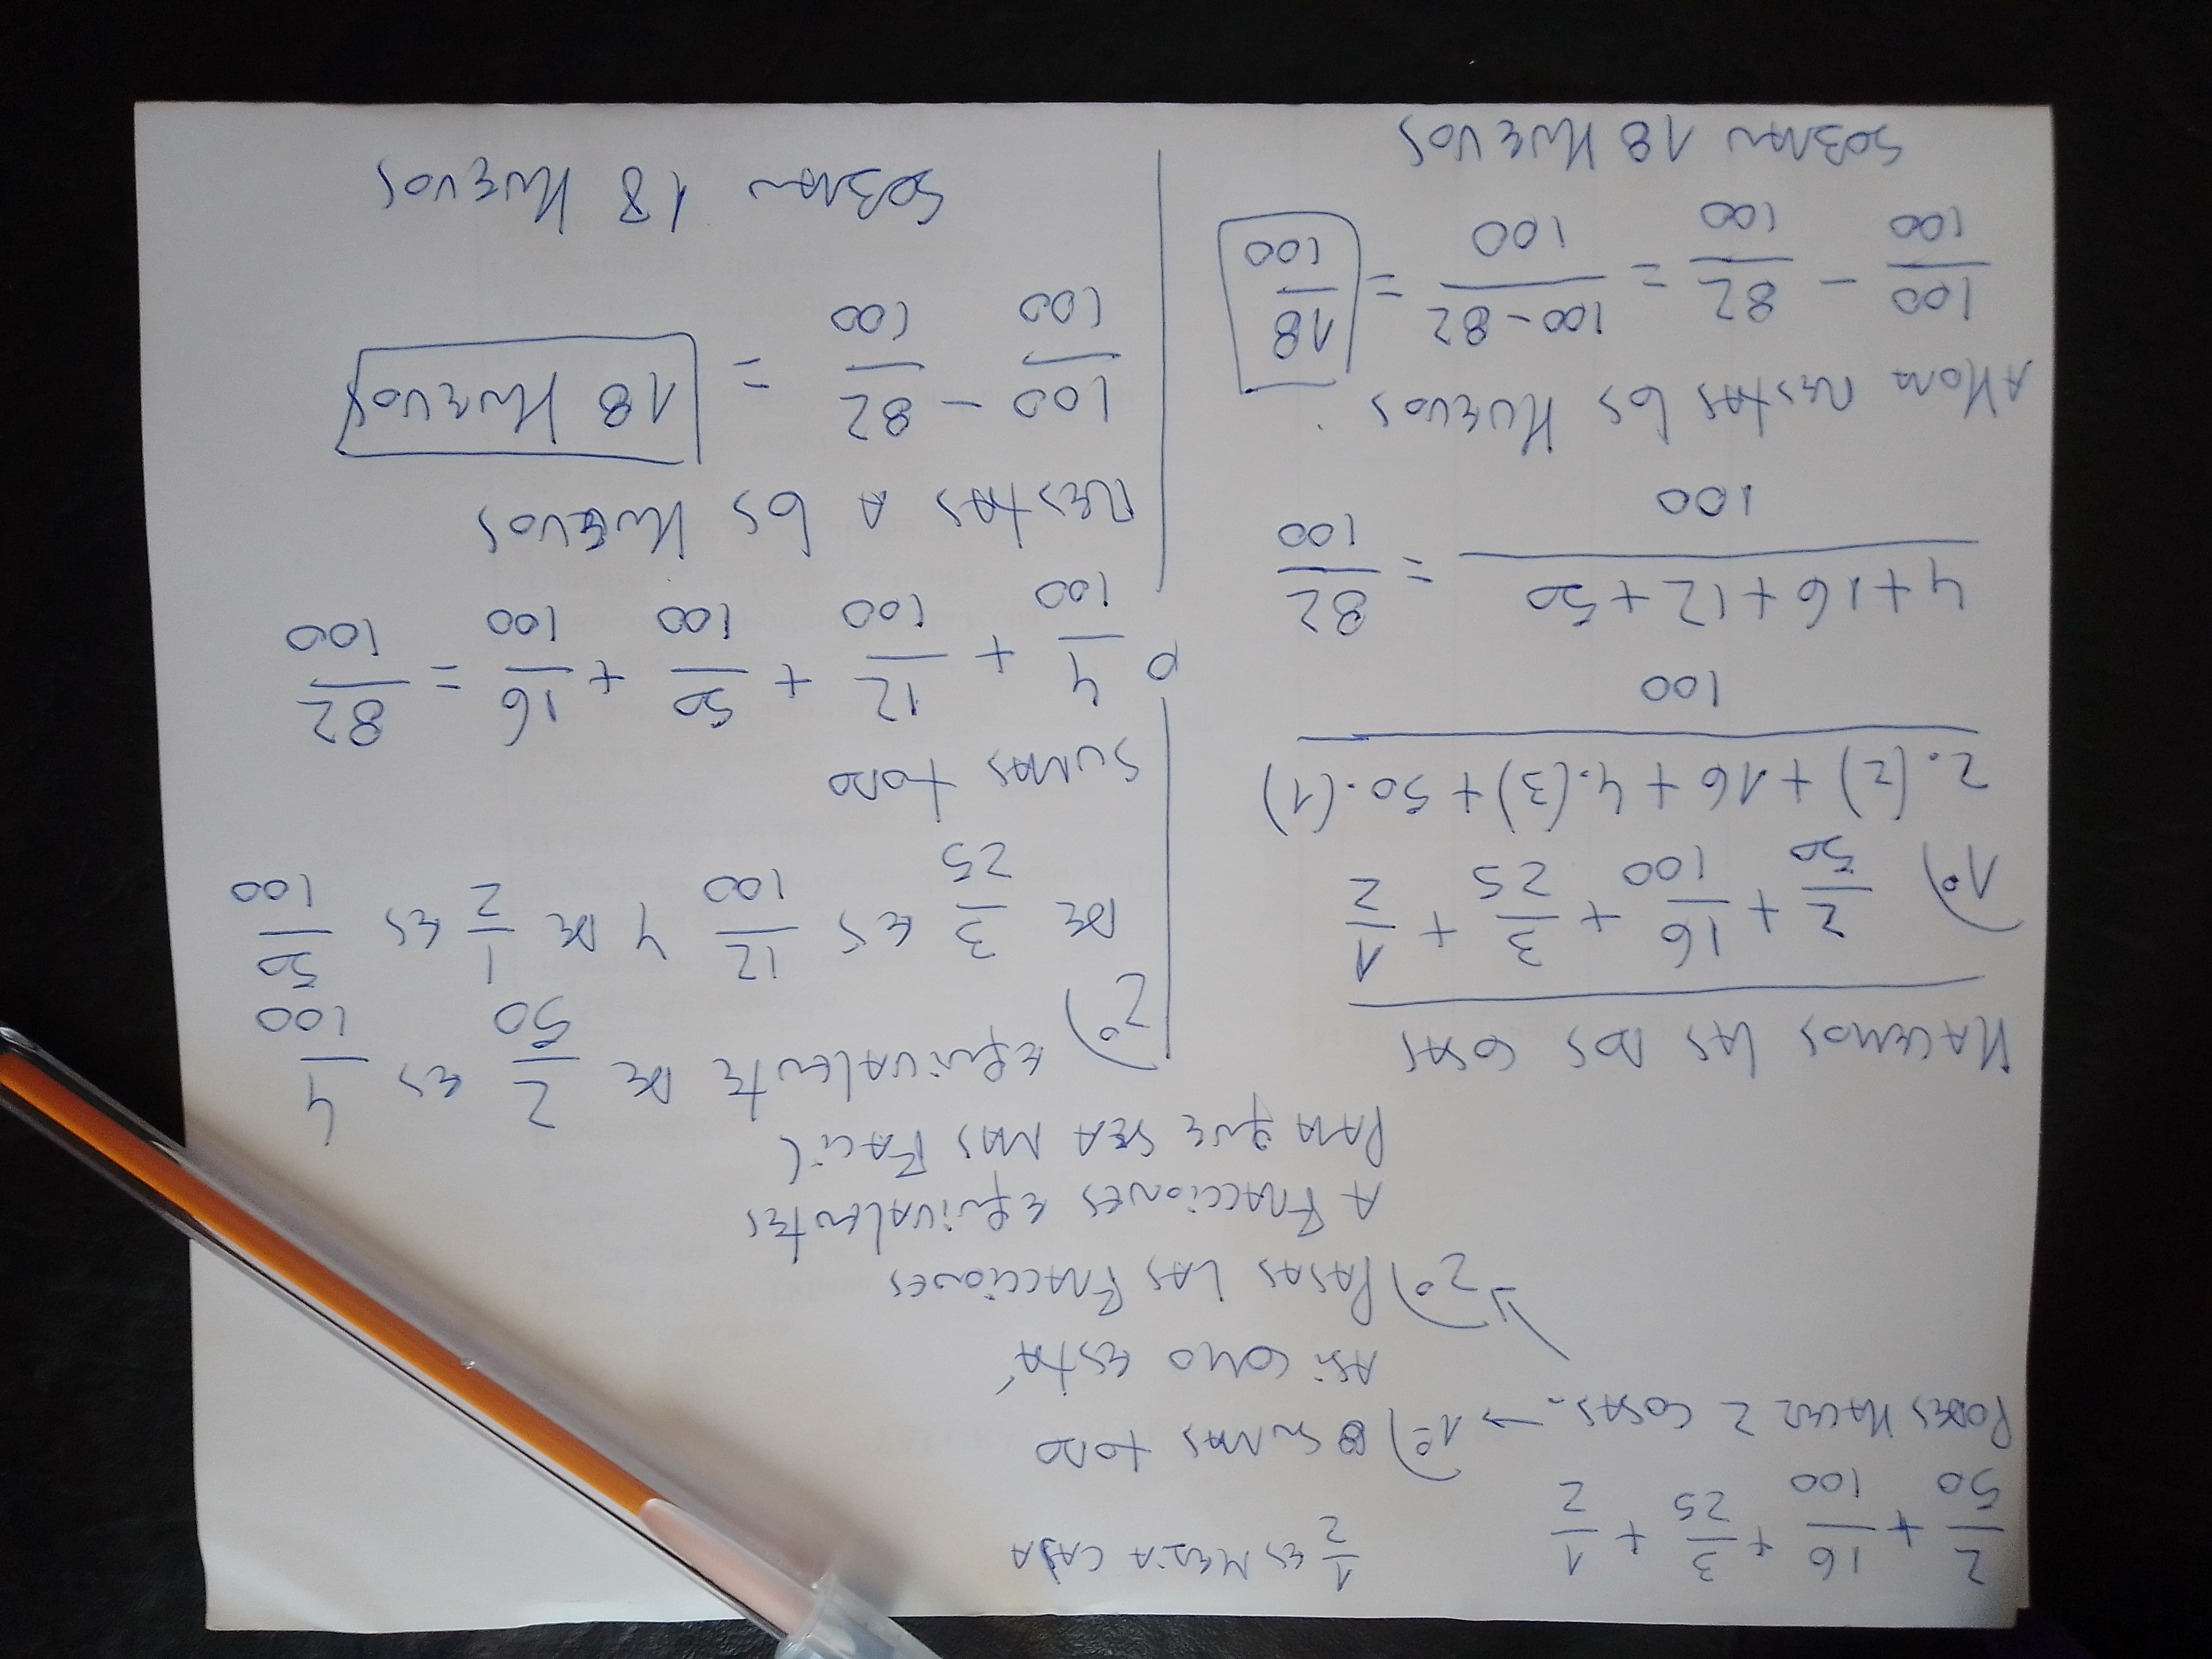 2/50 + 16/100 + 3/25 + 1/2
1/2 ES MEDIA CAJA
PODES HACER 2 COSAS. → 1º) SUMAS TODO
ASI COMO ESTÁ
→ 2º) PASAS LAS FRACCIONES
A FRACCIONES EQUIVALENTES
PARA QUE SEA MAS FACIL
HACEMOS LAS DOS COSAS
1º) 2/50 + 16/100 + 3/25 + 1/2
2.(2) + 16 + 4.(3) + 50.(1)
100
4 + 16 + 12 + 50 / 100 = 82/100
AHORA RESTAS LOS HUEVOS.
100/100 - 82/100 = 100-82/100 = 18/100
SOBRAN 18 HUEVOS
2º) EQUIVALENTE DE 2/50 ES 4/100
DE 3/25 ES 12/100 Y DE 1/2 ES 50/100
SUMAS TODO
4/100 + 12/100 + 50/100 + 16/100 = 82/100
RESTAS A LOS HUEVOS
100/100 - 82/100 = 18 HUEVOS
SOBRAN 18 HUEVOS